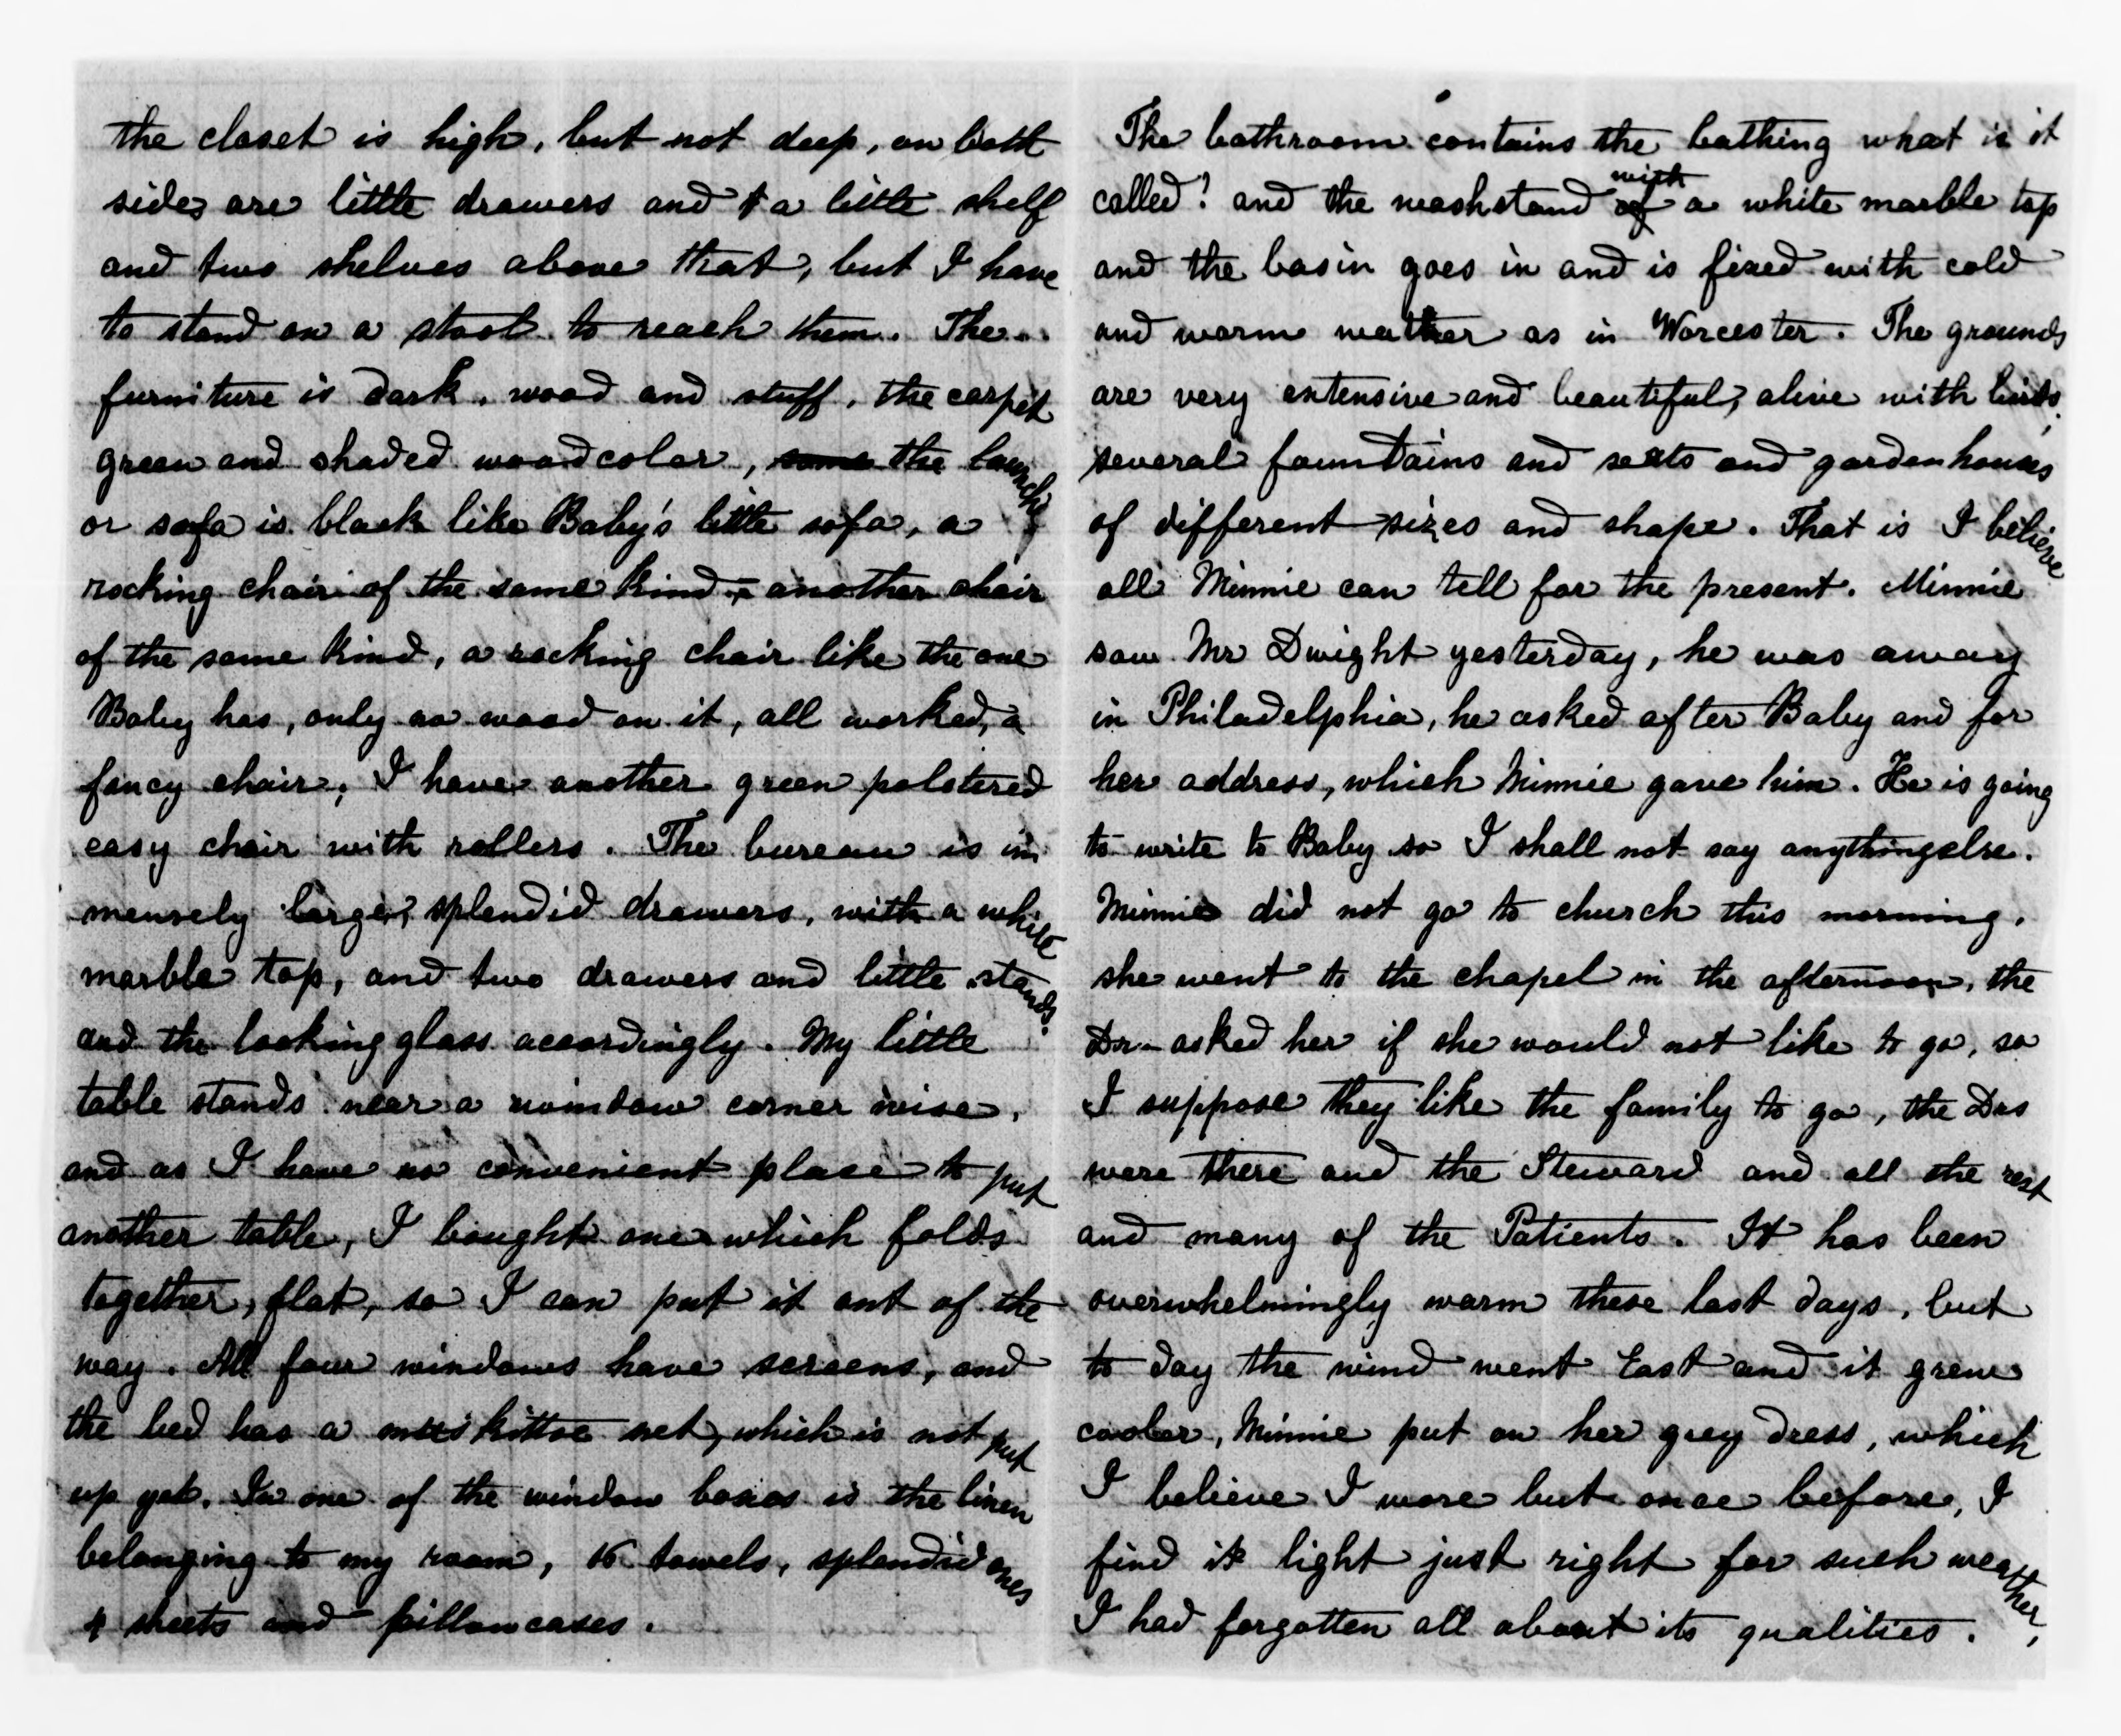 the closet is high, but not deep, on both
sides are little drawers and a little shelf
and two shelves above that, but I have
to stand on a stool to reach them. The
furniture is dark, wood and stuff, the carpet
green and shaded woodcolor, some the lounche
or sofa is black like Baby's little sofa, a
rocking chair of the same kind, another chair
of the same kind, a rocking chair like the one
Baby has, only no wood on it, all worked, a
fancy chair, I have another green polstered
easy chair with rollers. The bureau is im
mensely large, splendid drawers, with a white
marble top, and two drawers and little stands.
and the looking glass accordingly. My little
table stands near a window corner wise,
and as I have no convenient place to put
another table, I bought one which folds
together, flat, so I can put it out of the
way. All four windows have screens, and
the bed has a muskittoe net, which is not put
up yet. In one of the window boxes is the linen
belonging to my room, 16 towels, splendid ones
4 sheets and pillowcases.
The bathroom contains the bathing what is it
called? and the washstand of with a white marble top
and the basin goes in and is fixed with cold
and warm wather as in Worcester. The grounds
are very extensive and beautiful, alive with birds,
several fountains and seats and gardenhouses
of different sizes and shape. That is I believe
all Minnie can tell for the present. Minnie
saw Mr Dwight yesterday, he was away
in Philadelphia, he asked after Baby and for
her address, which Minnie gave him. He is going
to write to Baby so I shall not say anythingelse.
Minnie did not go to church this morning,
she went to the chapel in the afternoon, the
Dr- asked her if she would not like to go, so
I suppose they like the family to go, the Drs
were there and the Steward and all the rest
and many of the Patients. It has been
overwhelmingly warm these last days, but
to day the wind went East and it grew
cooler, Minnie put on her grey dress, which
I believe I wore but once before, I
find it light just right for such weather,
I had forgotten all about its qualities.